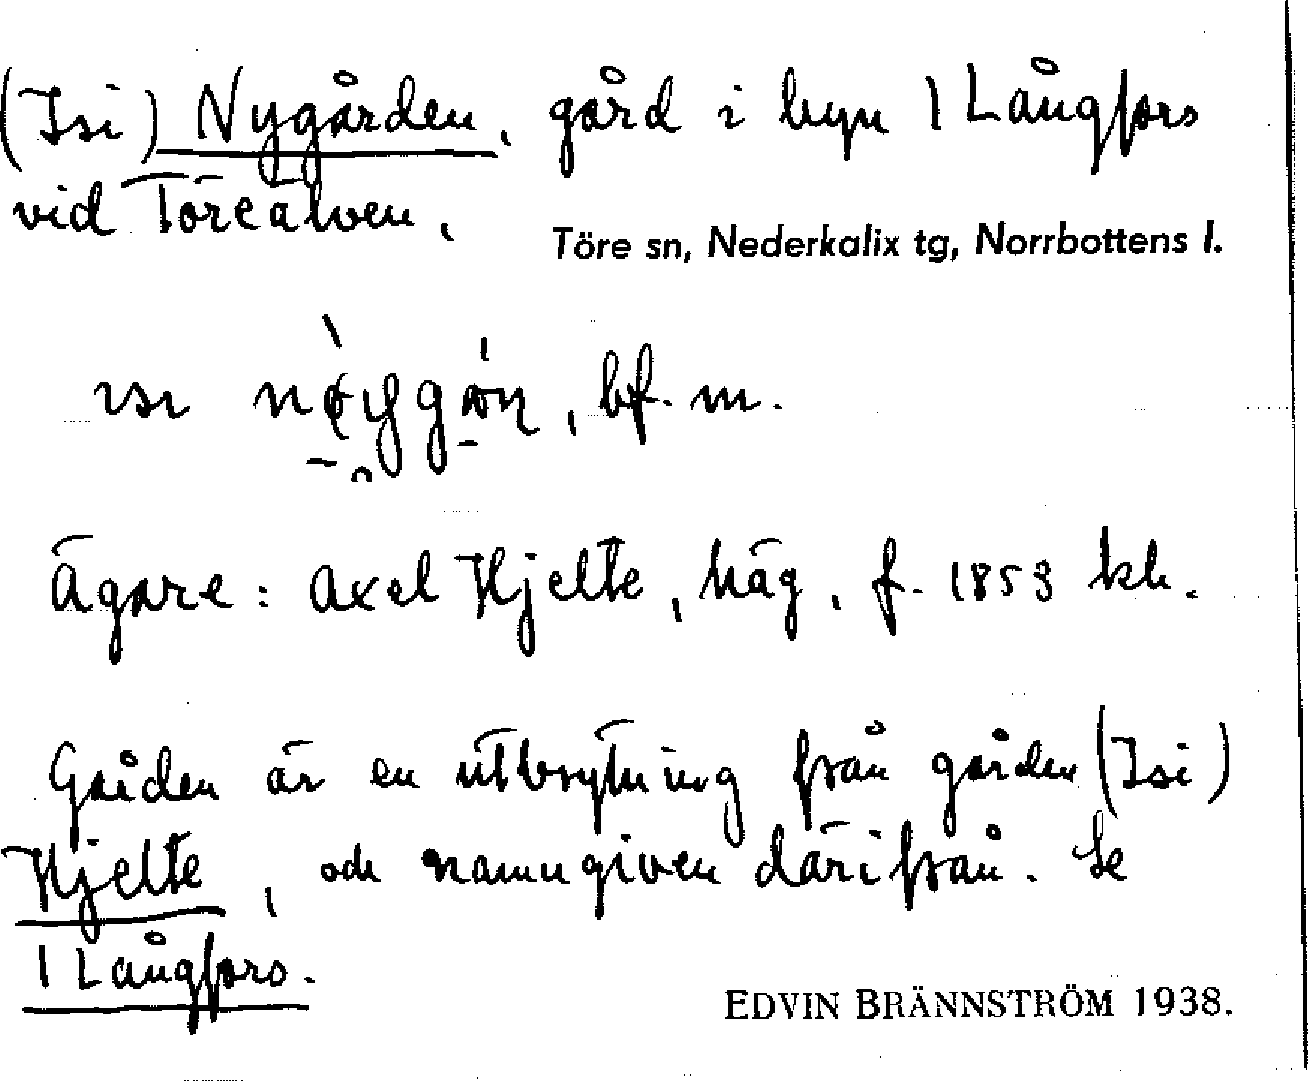 (Isi) Nygården, gård i byn 1 Långfors
vid Töreälven,
Töre sn, Nederkalix tg, Norrbottens l.
ısı , bf. m.
Ägare: Axel Hjelte, häg, f. 1853 kh.
Gården är en utbrytning från gården (Isi)
Hjelte, och namngiven därifrån. Se
1 Långfors.
EDVIN BRÄNNSTRÖM 1938.